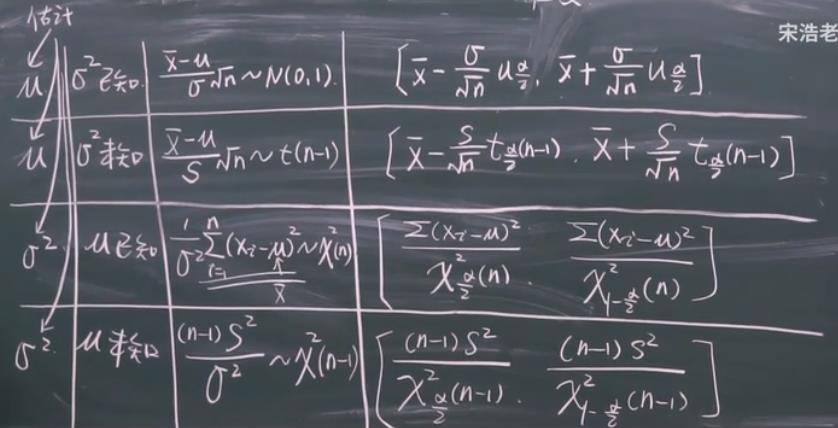 估计
宋浩老
μ σ²已知 (x̄-μ)/σ √n ~ N(0,1). [x̄ - σ/√n u_{α/2}, x̄ + σ/√n u_{α/2}]
μ σ²未知 (x̄-μ)/S √n ~ t(n-1) [x̄ - S/√n t_{α/2}(n-1), x̄ + S/√n t_{α/2}(n-1)]
σ² μ已知 1/σ² Σ_{i=1}^{n}(x_i-μ)² ~ χ²(n) [Σ(x_i-μ)²/χ²_{α/2}(n), Σ(x_i-μ)²/χ²_{1-α/2}(n)]
x̄
σ² μ未知 (n-1)S²/σ² ~ χ²(n-1) [(n-1)S²/χ²_{α/2}(n-1), (n-1)S²/χ²_{1-α/2}(n-1)]